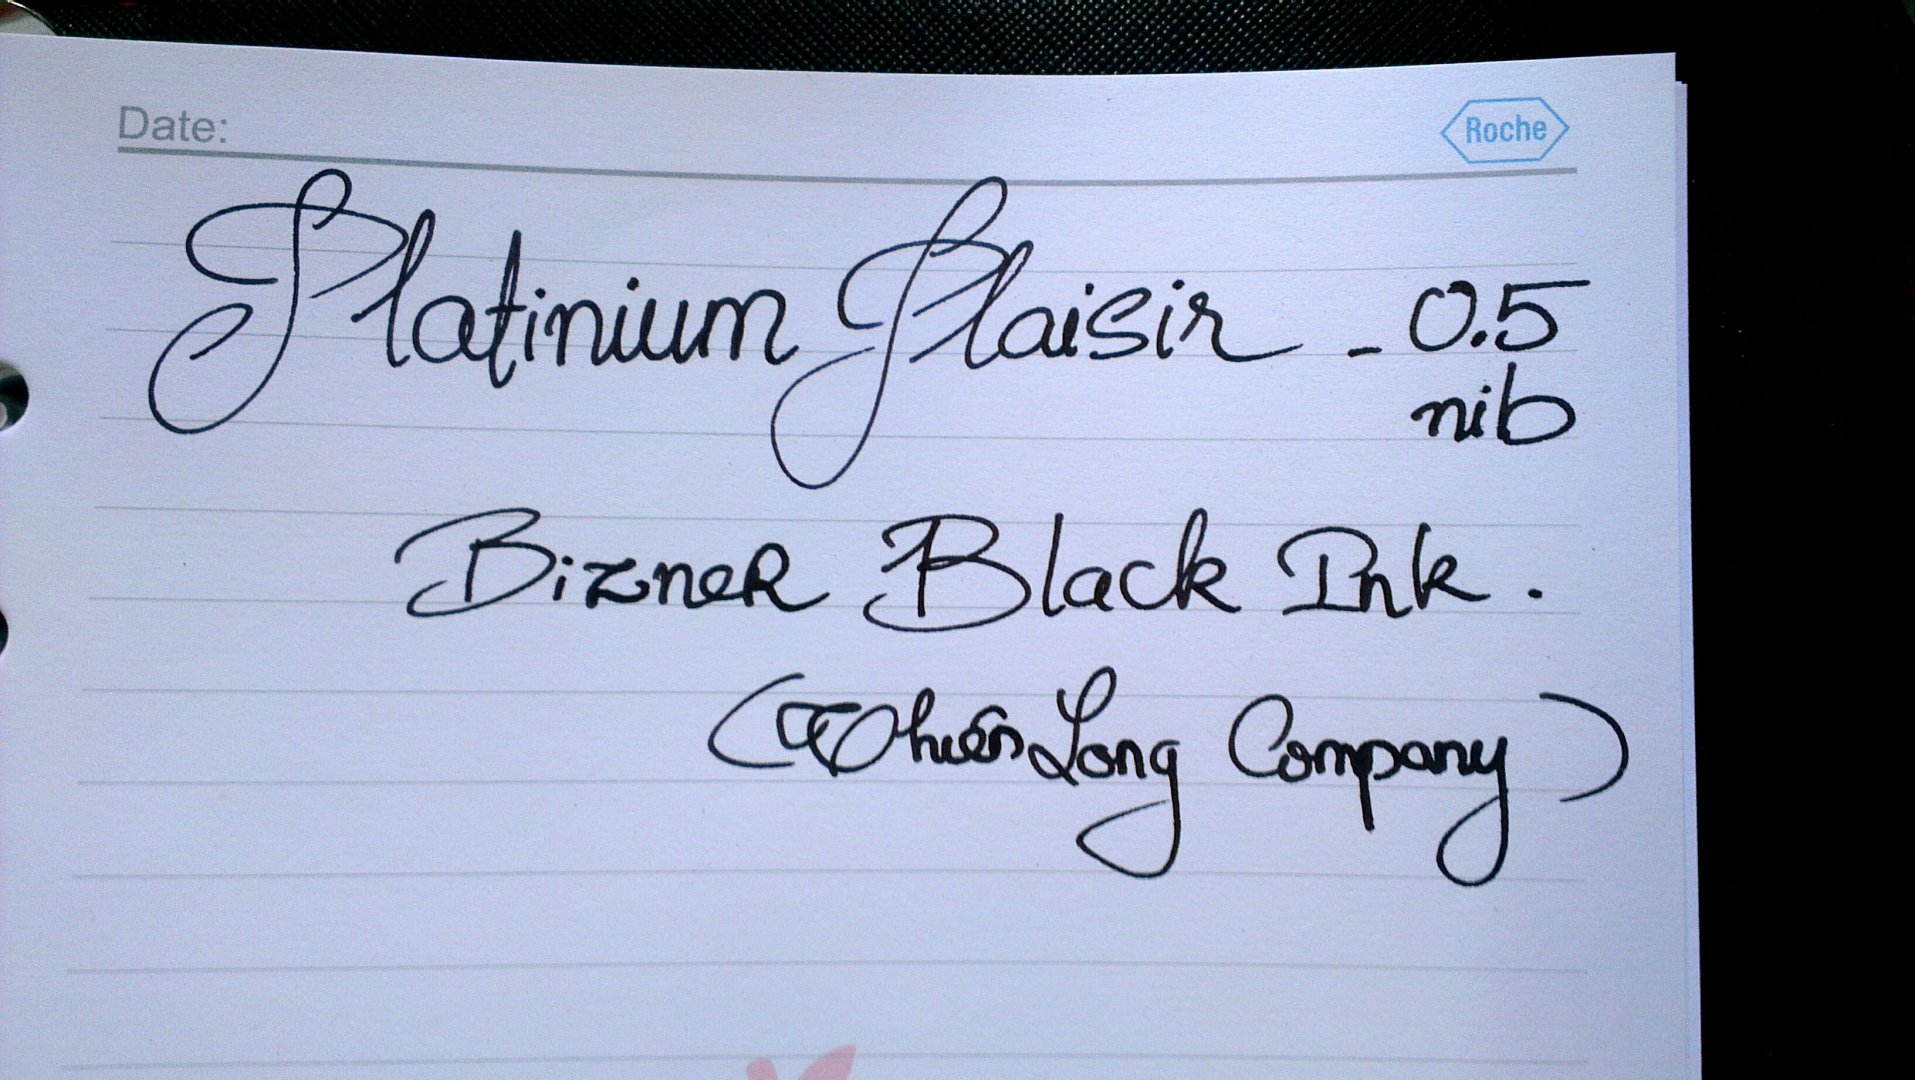 Date:
Roche
Platinium Plaisir - 0.5
nib
Bizner Black Ink.
(Thiên Long Company)